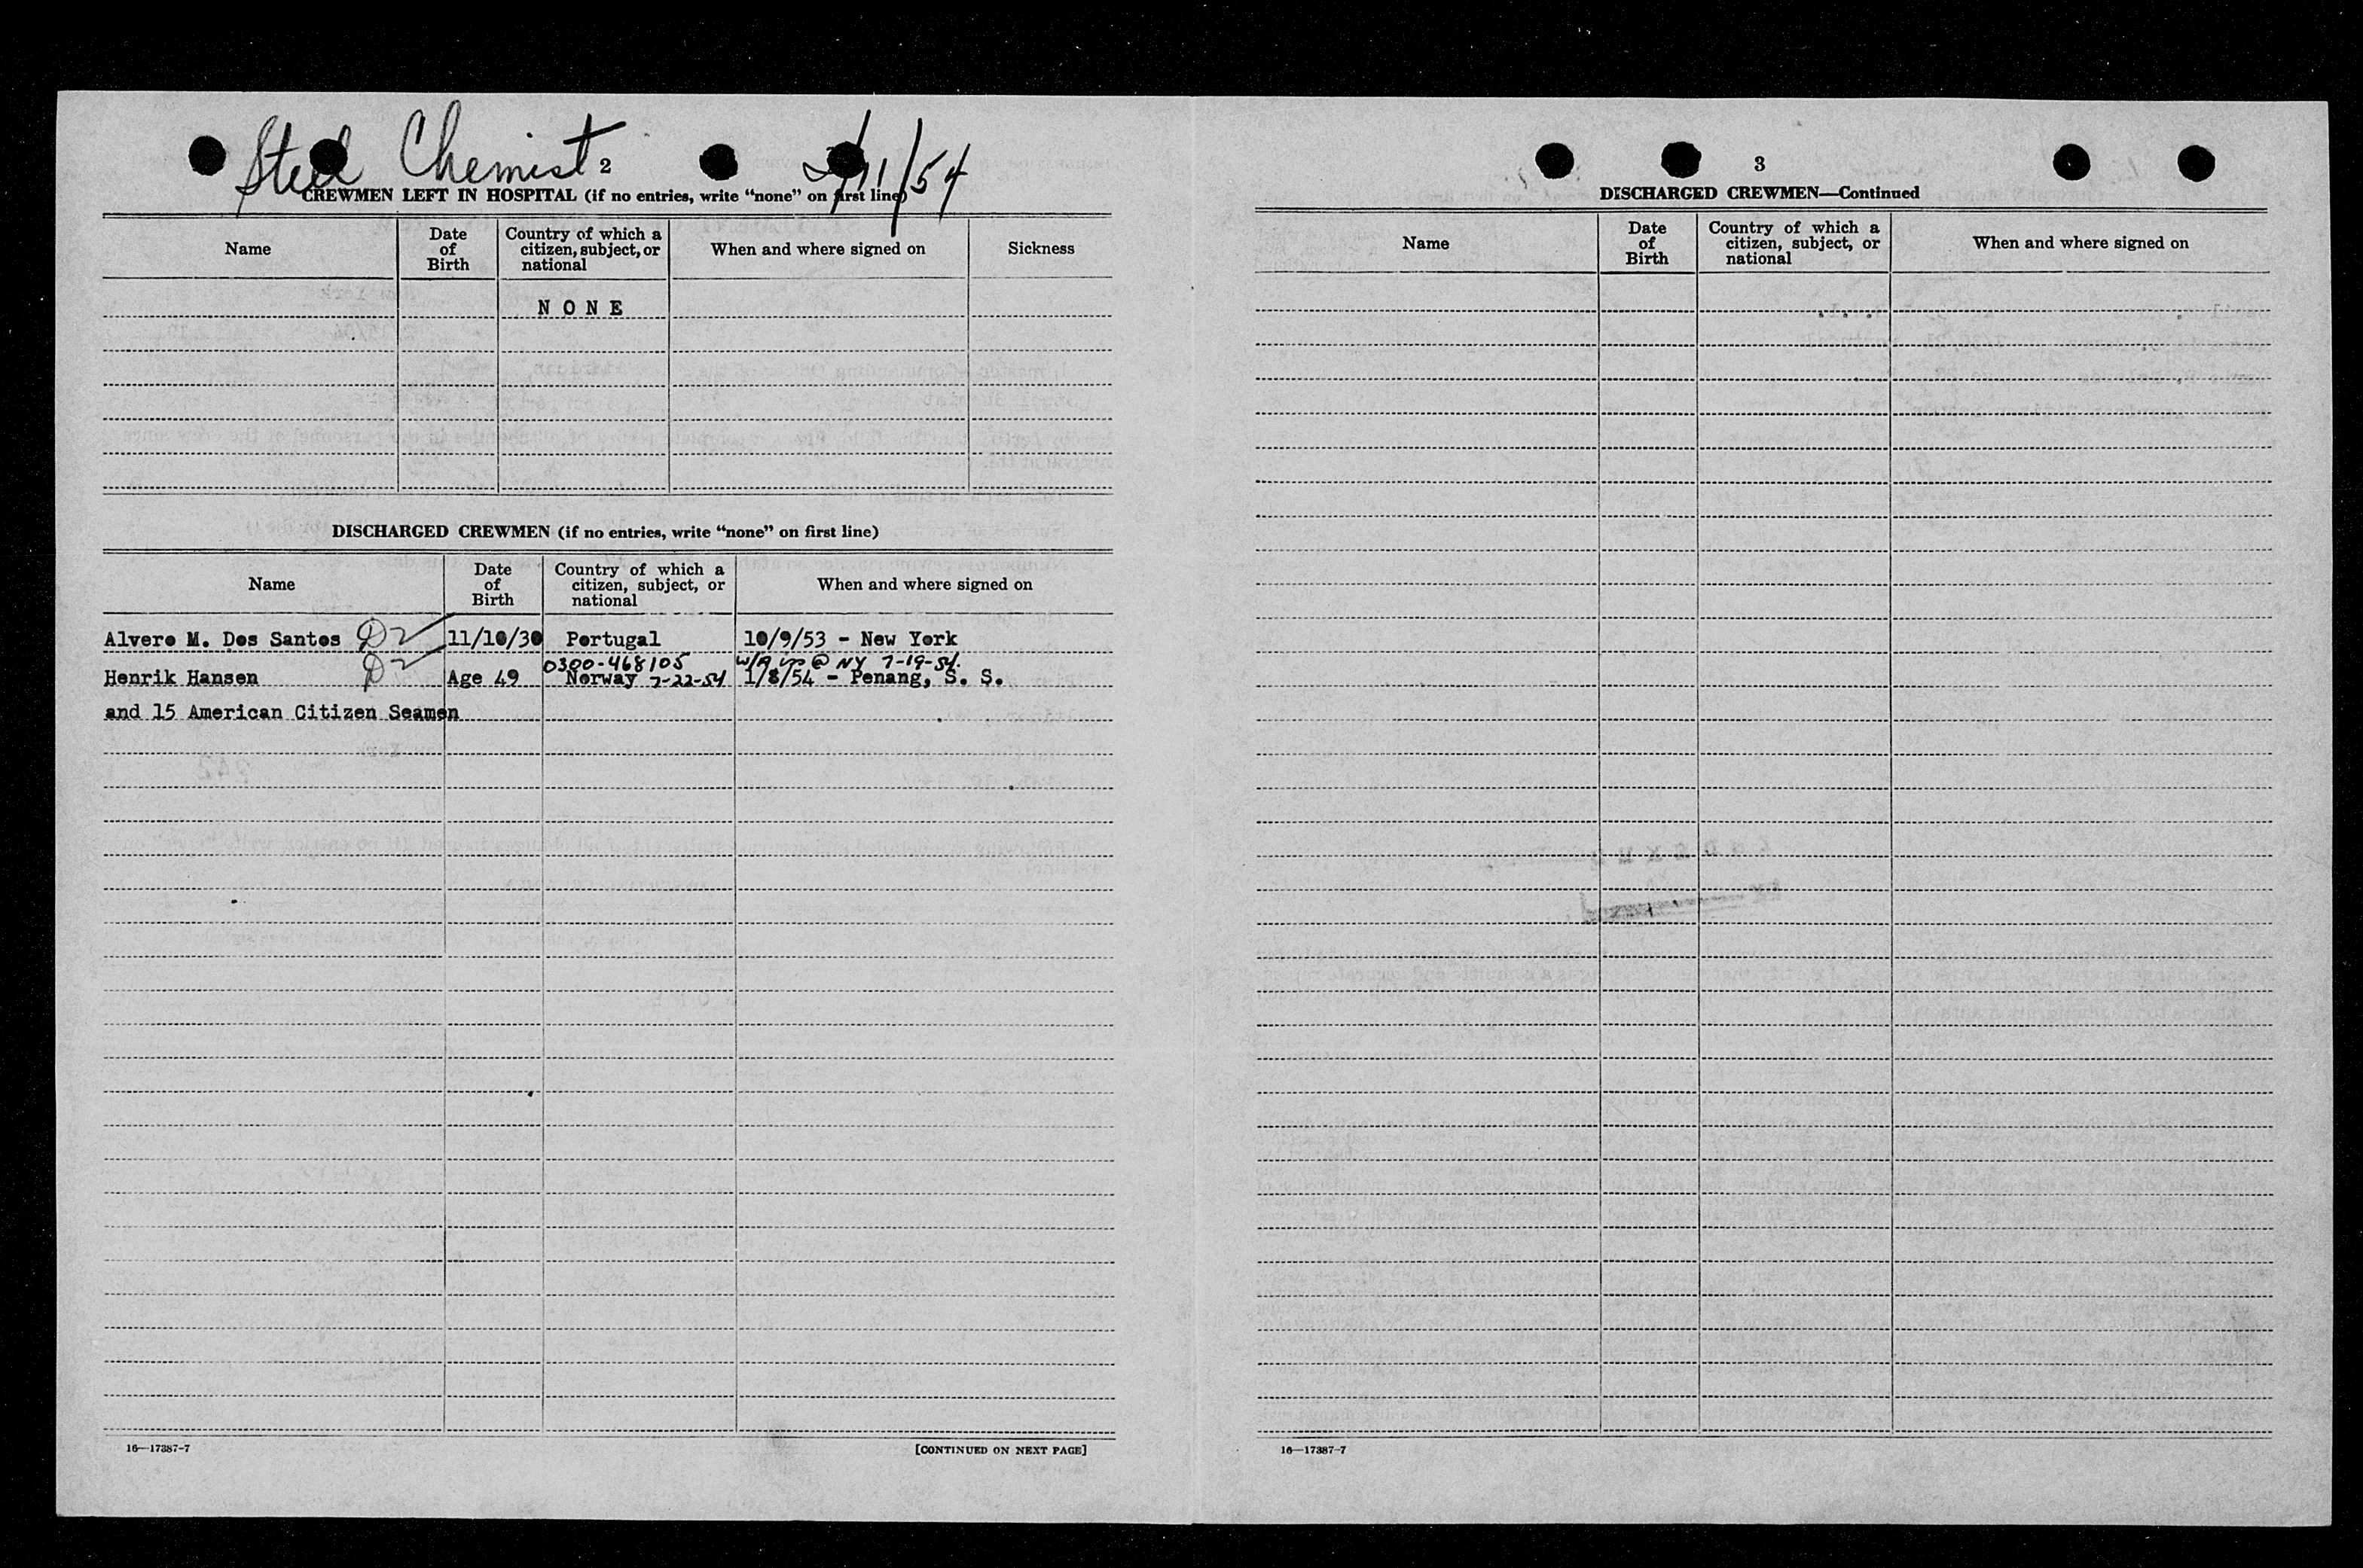 Steel Chemist 2/11/54
2
CREWMEN LEFT IN HOSPITAL (if no entries, write “none” on first line)
Name
Date of Birth
Country of which a citizen, subject, or national
When and where signed on
Sickness
NONE
DISCHARGED CREWMEN (if no entries, write “none” on first line)
Name
Date of Birth
Country of which a citizen, subject, or national
When and where signed on
Alvero M. Dos Santos D2 11/10/30 Portugal 10/9/53 - New York
0300-468105 w/A ip @ NY 7-19-54
Henrik Hansen D2 Age 49 Norway 7-22-54 1/8/54 - Penang, S. S.
and 15 American Citizen Seamen
16—17387-7
[CONTINUED ON NEXT PAGE]
3
DISCHARGED CREWMEN—Continued
Name
Date of Birth
Country of which a citizen, subject, or national
When and where signed on
16—17387-7